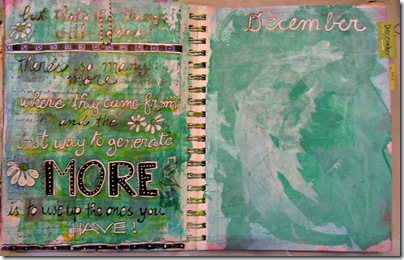 but that's the thing
with ideas!
there's so many
more
where they came from
and the
best way to generate
MORE
is to use up the ones you
HAVE!
December
December